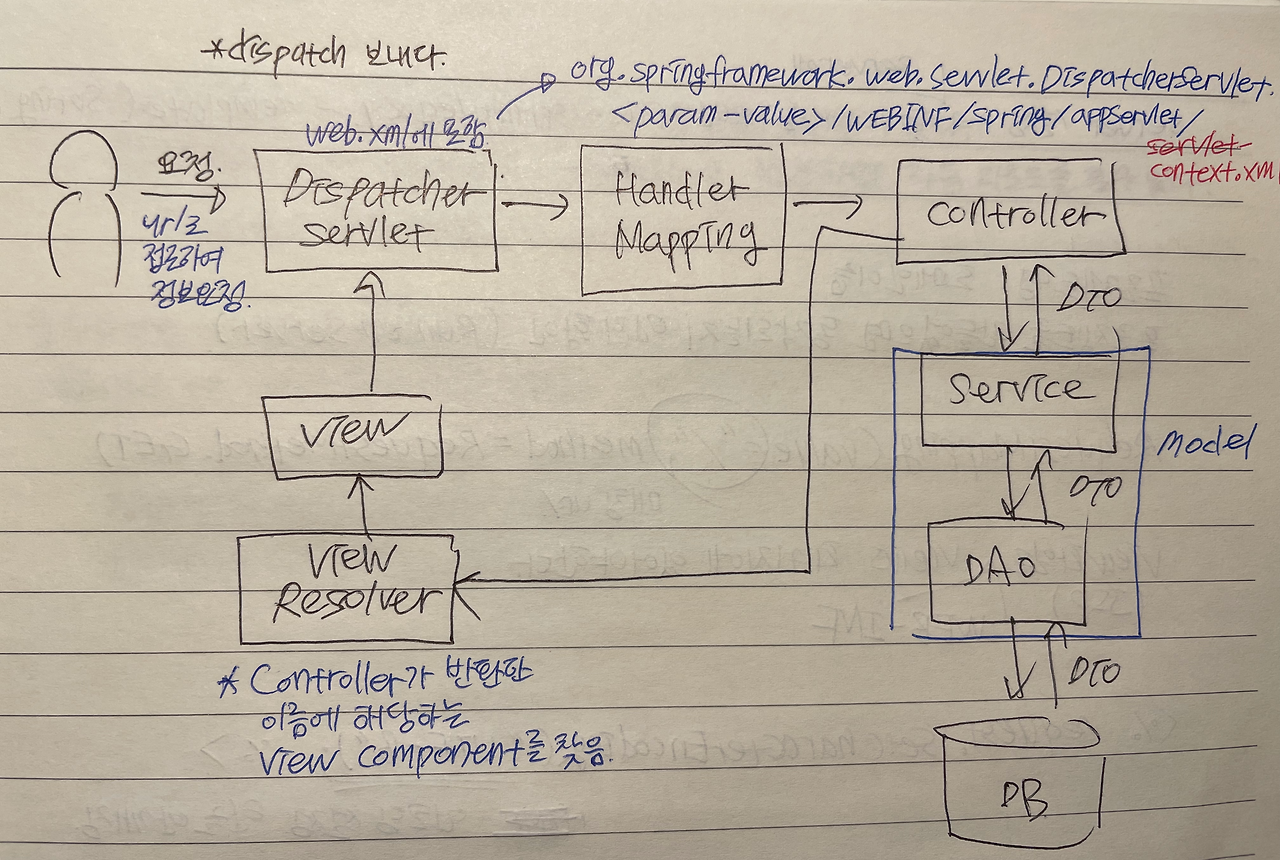 *dispatch 보내다.
org.springframework.web.servlet.DispatcherServlet.
<param-value>/WEBINF/spring/appServlet/
servlet-
context.xml
web.xml에 포함
요청.
url로
접근하여
정보요청.
Dispatcher
servlet
Handler
Mapping
controller
DTO
Service
Model
DTO
DAO
DTO
DB
view
view
Resolver
* Controller가 반환한
이름에 해당하는
view component를 찾음.